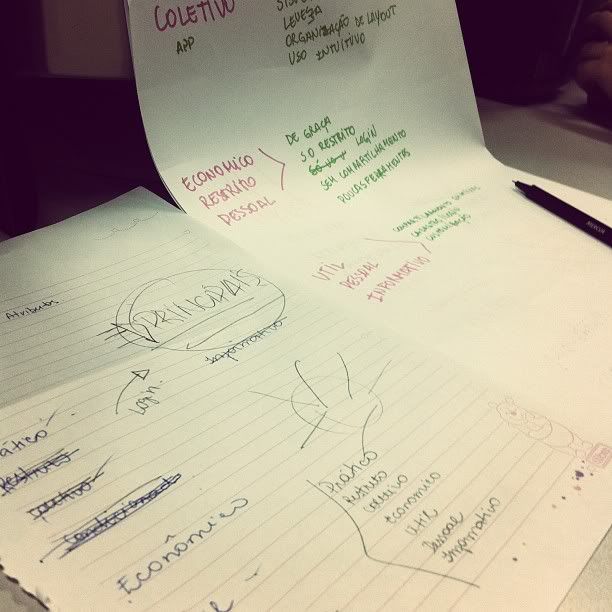 COLETIVO
APP
LEVEZA
ORGANIZAÇÃO DE LAYOUT
USO INTUITIVO
ECONOMICO
RESTRITO
PESSOAL
DE GRAÇA
SO RESTRITO
LOGIN
SEM COMPARTILHAMENTO
POUCAS FERRAMENTAS
UTIL
PESSOAL
INFORMATIVO
COMUNICAÇÃO
Atributos
PRINCIPAIS
Informativo
Login
Restrito
coletivo
Econômico
Prático
Restrito
coletivo
Econômico
Util
Pessoal
Informativo